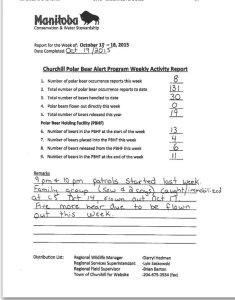 Manitoba
Conservation & Water Stewardship
Report for the Week of: October 12 – 18, 2015
Date Completed Oct 19/2015
Churchill Polar Bear Alert Program Weekly Activity Report
1. Number of polar bear occurrence reports this week 8
2. Total number of polar bear occurrence reports to date 131
3. Total number of bears handled to date 30
4. Polar bears flown out directly this week 0
5. Total number of bears released this year 19
Polar Bear Holding Facility (PBHF)
6. Number of bears in the PBHF at the start of the week 13
7. Number of bears placed into the PBHF this week 4
8. Number of bears released from the PBHF this week 6
9. Number of bears in the PBHF at the end of the week 11
Remarks
9 pm + 10 pm patrols started last week.
Family group (sow & 2 coys) caught/immobilized
at C5 Oct 14, flown out Oct 17.
Five more bears due to be flown
out this week.
Distribution List:
Regional Wildlife Manager -Darryl Hedman
Regional Services Superintendent
Regional Field Supervisor -Brian Barton
Town of Churchill for Website